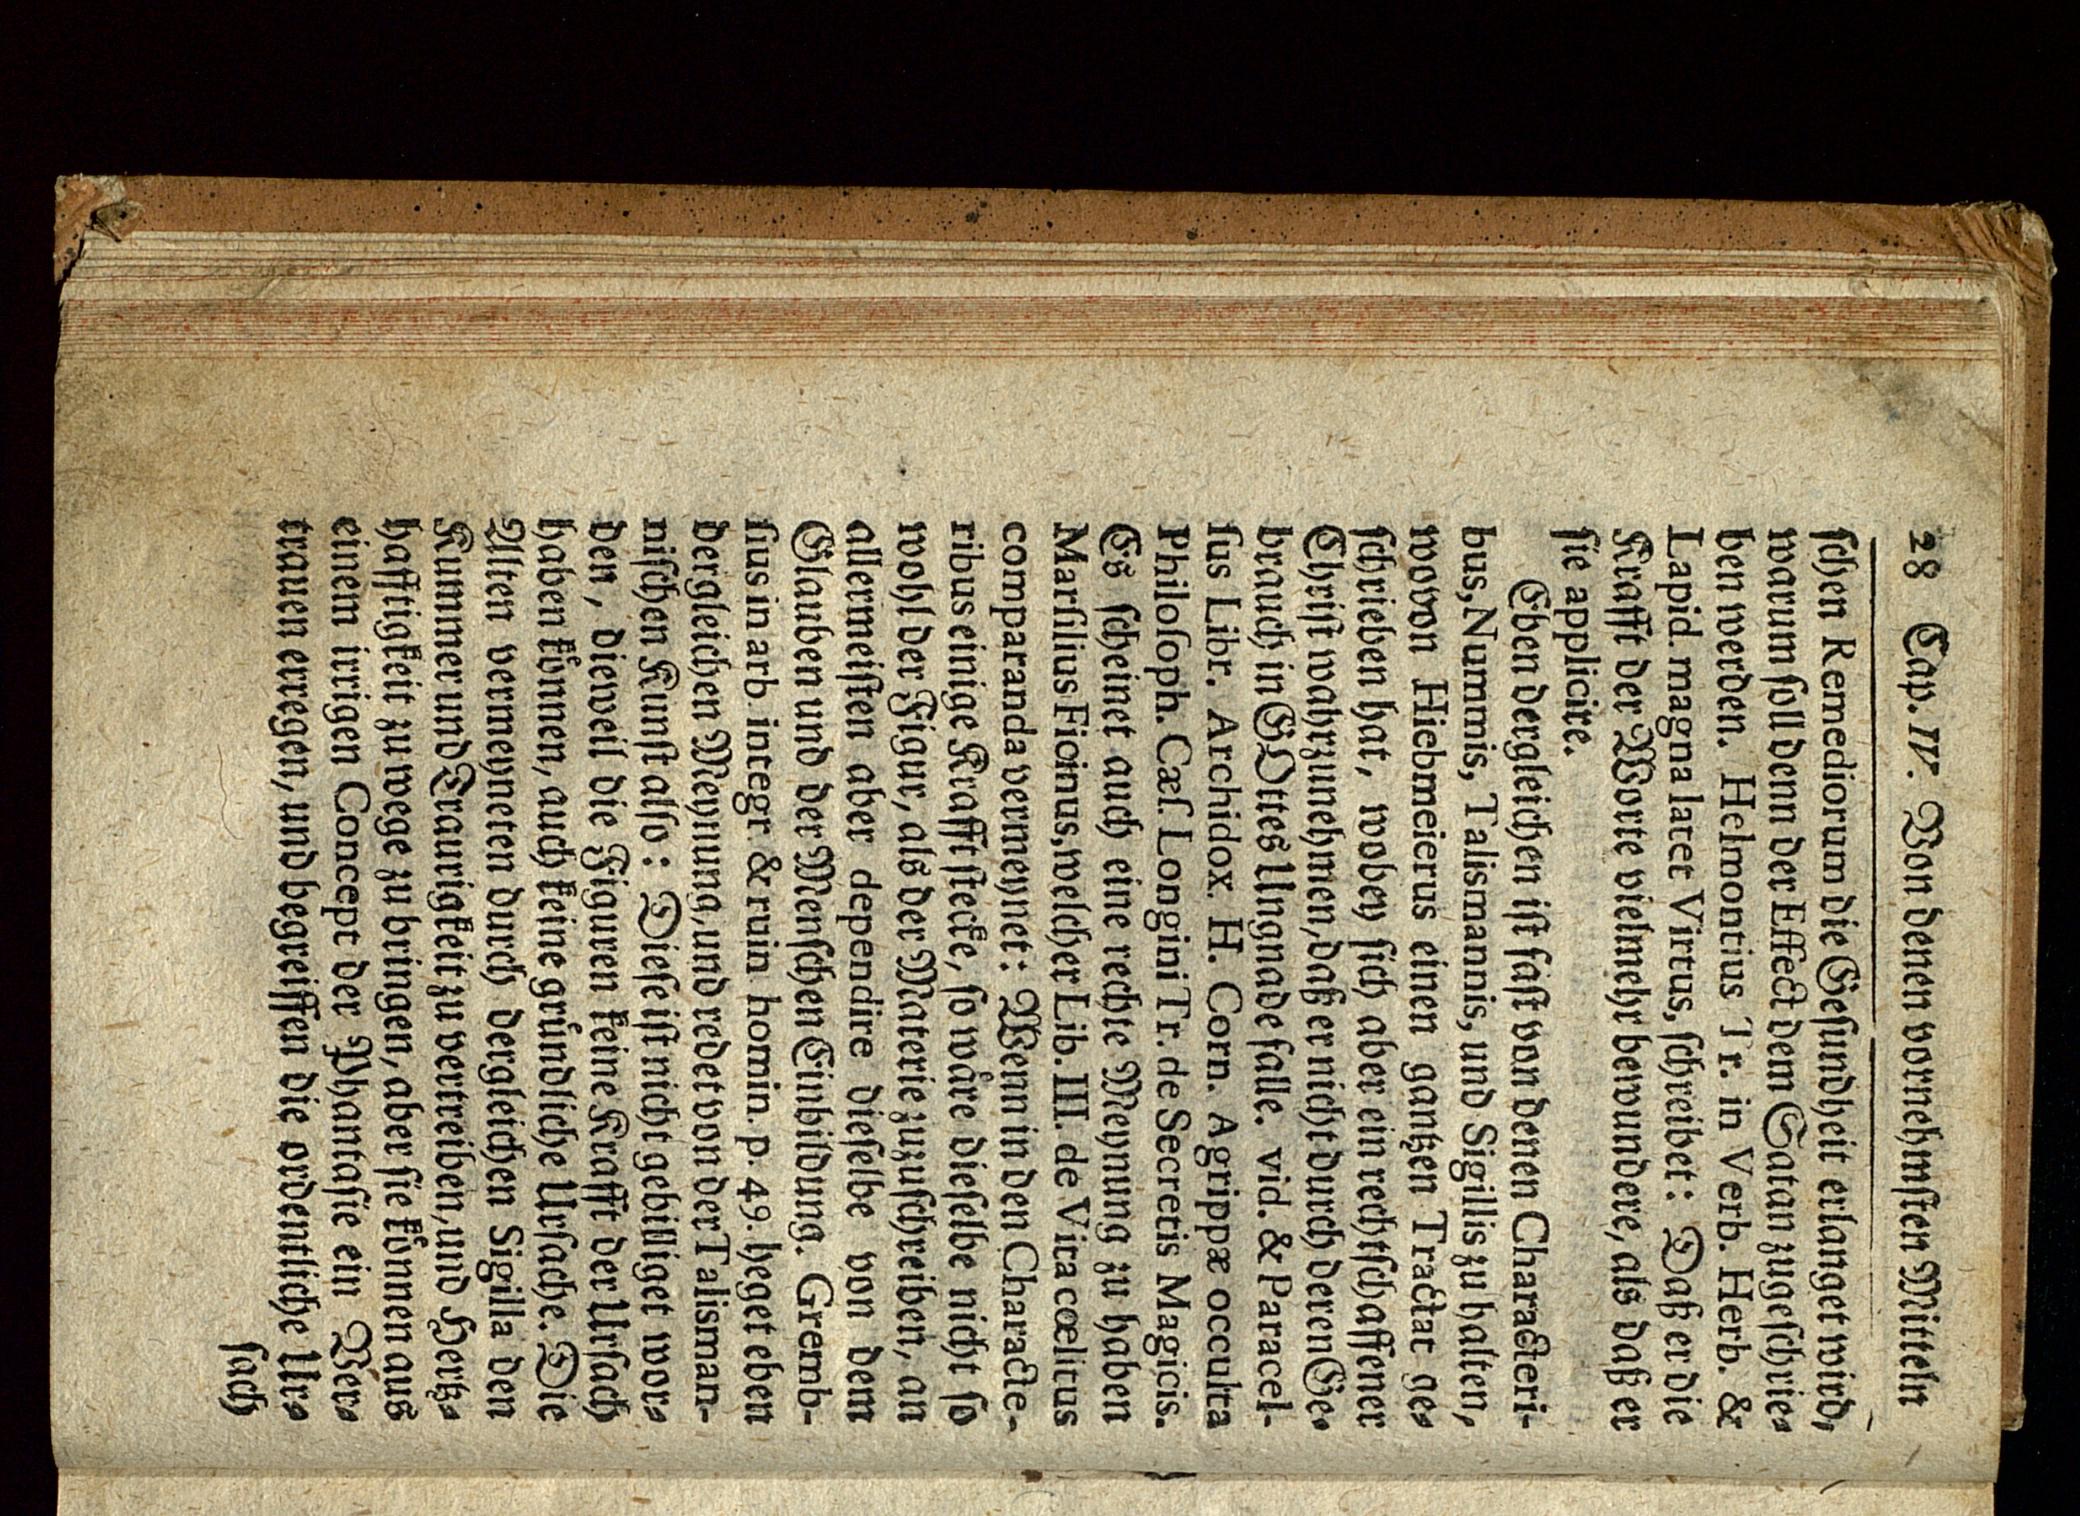 28 Cap. IV. Von denen vornehmſten Mitteln
ſchen Remediorum die Geſundheit erlanget wird,
warum ſoll denn der Effect dem Satan zugeſchrie-
ben werden. Helmontius Tr. in Verb. Herb. &
Lapid. magna latet Virtus, ſchreibet: Daß er die
Krafft der Worte vielmehr bewundere, als daß er
ſie applicire.
Eben dergleichen iſt faſt von denen Characteri-
bus, Nummis, Talismannis, und Sigillis zu halten,
wovon Hiebmeierus einen gantzen Tractat ge-
ſchrieben hat, wobey ſich aber ein rechtſchaffener
Chriſt wahrzunehmen, daß er nicht durch deren Ge-
brauch in GOttes Ungnade falle. vid. & Paracel-
ſus Libr. Archidox. H. Corn. Agrippæ occulta
Philoſoph. Cæſ. Longini Tr. de Secretis Magicis.
Es ſcheinet auch eine rechte Meynung zu haben
Marſilius Fioinus, welcher Lib. III. de Vita cœlitus
comparanda vermeynet: Wenn in den Characte-
ribus einige Krafft ſtecke, ſo wåre dieſelbe nicht ſo
wohl der Figur, als der Materie zuzuſchreiben, an
allermeiſten aber dependire dieſelbe von dem
Glauben und der Menſchen Einbildung. Gremb-
ſius in arb. integr. & ruin homin. p. 49. heget eben
dergleichen Meynung, und redet von der Talisman-
niſchen Kunſt alſo: Dieſe iſt nicht gebilliget wor-
den, dieweil die Figuren keine Krafft der Urſach
haben koͤnnen, auch keine gruͤndliche Urſache. Die
Alten vermeyneten durch dergleichen Sigilla den
Kummer und Traurigkeit zu vertreiben, und Hertz-
hafftigkeit zu wege zu bringen, aber ſie koͤnnen aus
einem irrigen Concept der Phantaſie ein Ver-
trauen erregen, und begreiffen die ordentliche Ur-
ſach